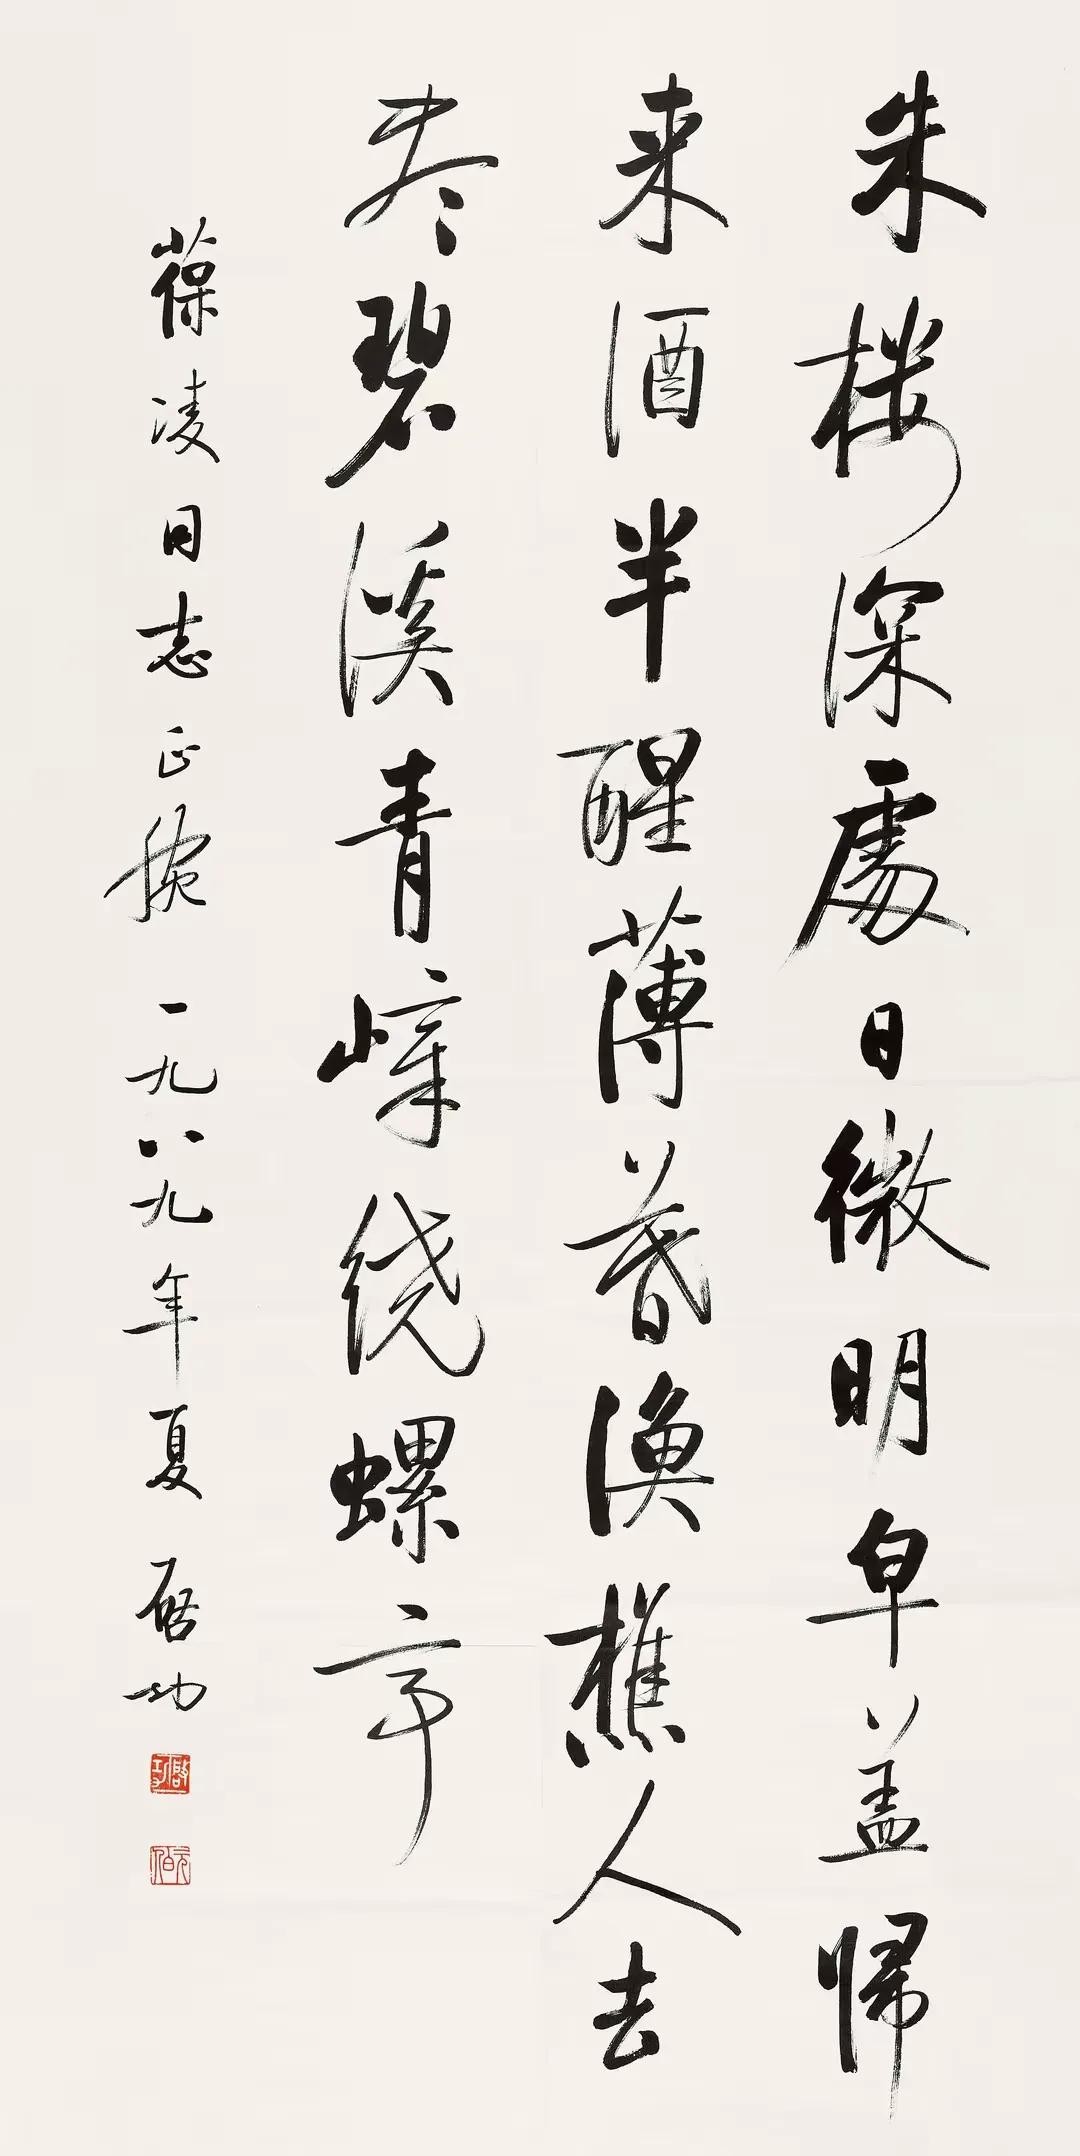 朱楼深處日微明皁盖帰
来酒半醒薄暮渔樵人去
尽碧溪青嶂绕螺亭
葆凌同志正腕 一九八九年夏 启功
啓功